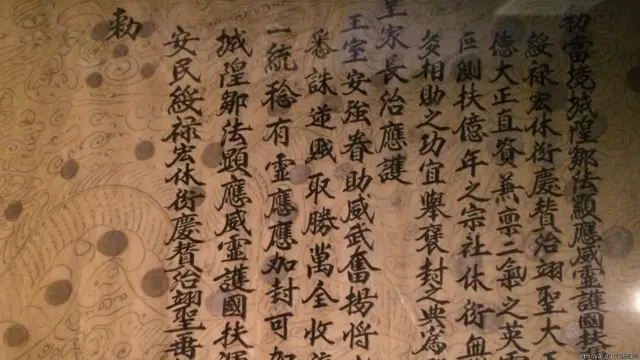 勅當境城隍鄒法顯應威靈護國扶
綏禄宏休衍慶賛治翊聖大
德大正直資兼禀二氣之英
叵測扶億年之宗社休衍
多相助之功宜舉褒封之典爲
皇家長治應護
王室安強眷助威武奮揚將
悉誅逆賊取勝萬全收
一統稔有靈應應加封可加
城隍鄒法顯應威靈護國扶
安民綏禄宏休衍慶賛治翊聖
勅